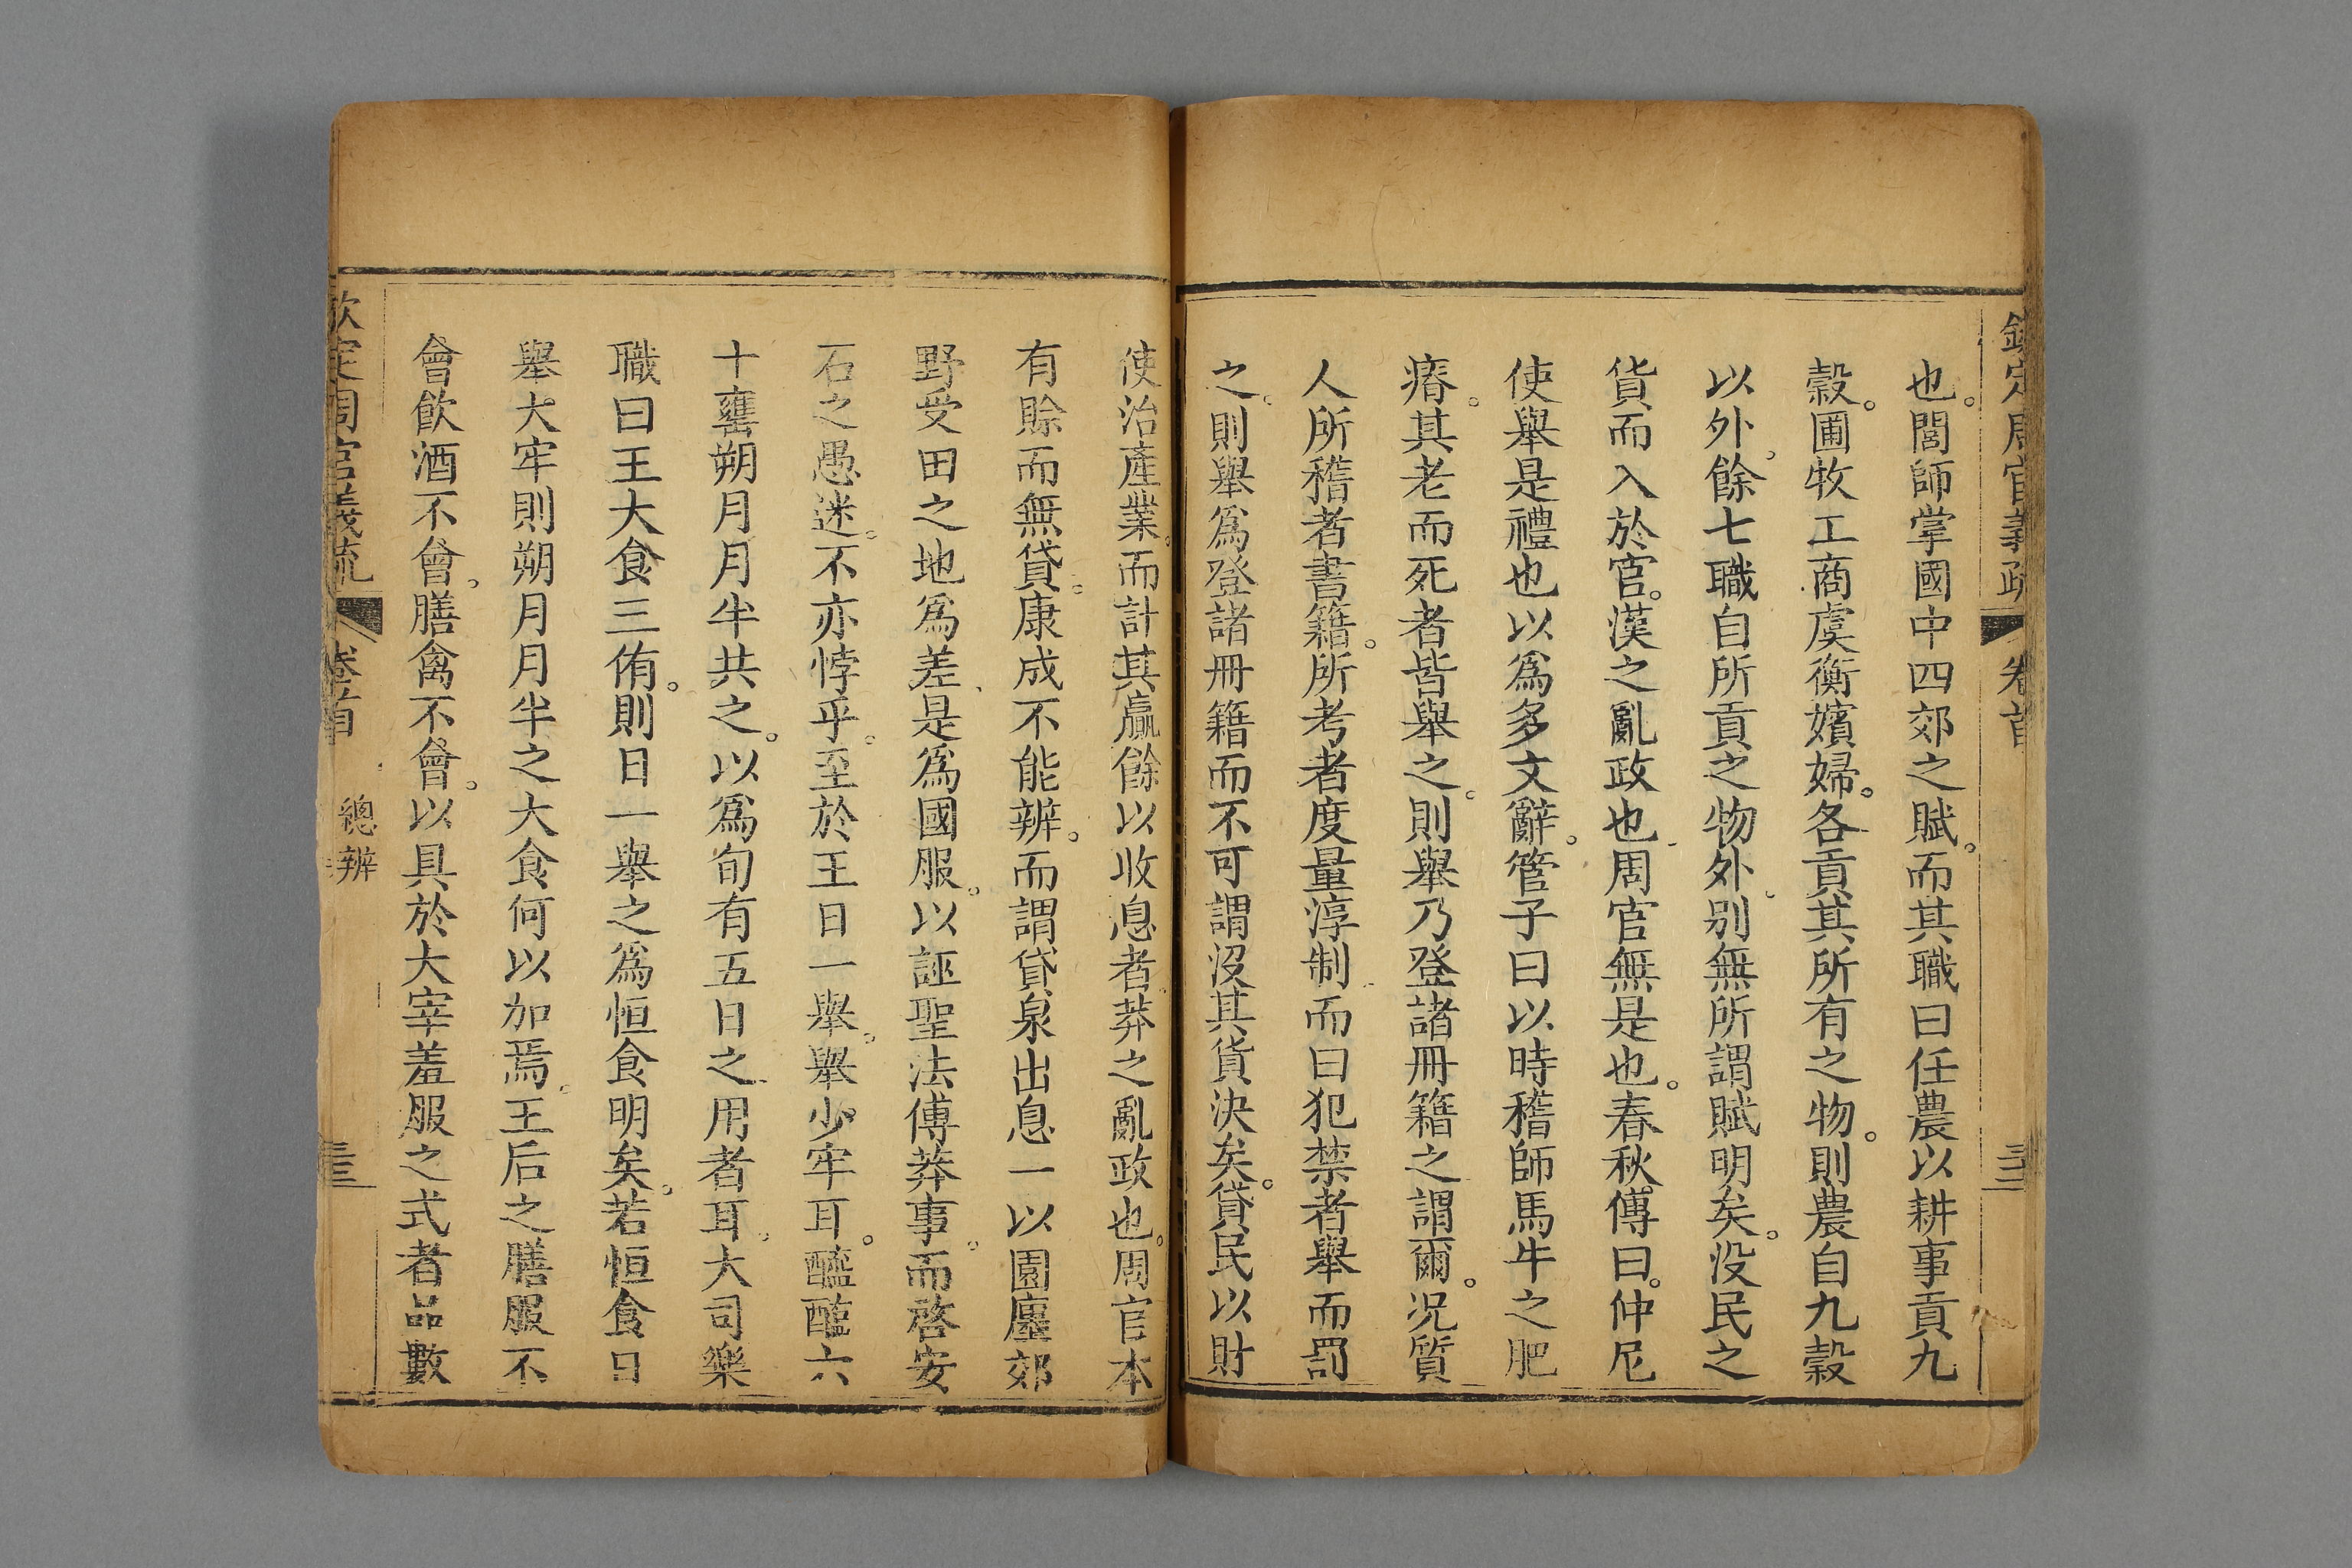 欽定周官義疏 卷首 三三
也。閭師掌國中四郊之賦。而其職曰任農以耕事貢九
穀。圃牧工商虞衡嬪婦。各貢其所有之物。則農自九穀
以外。餘七職自所貢之物外。别無所謂賦明矣。没民之
貨而入於官。漢之亂政也周官無是也。春秋傳曰。仲尼
使舉是禮也以為多文辭。管子曰以時稽師馬牛之肥
瘠。其老而死者皆舉之。則舉乃登諸冊籍之謂爾。况質
人所稽者書籍。所考者度量淳制而曰犯禁者舉而罰
之。則舉為登諸冊籍而不可謂沒其貨決矣。貸民以財
使治產業。而計其贏餘以收息者。莽之亂政也。周官本
有賒而無貸。康成不能辨。而謂貸泉出息一以園廛郊
野受田之地為差、是為國服。以誣聖法傅莽事。而啓安
石之愚迷。不亦悖乎。至於王日一舉。舉少牢耳。醯醢六
十罋朔月月半共之。以為旬有五日之用者耳。大司樂
職曰王大食三侑。則日一舉之為恒食明矣。若恒食日
舉大牢則朔月月半之大食何以加焉。王后之膳服不
會飲酒不會。膳禽不會。以具於大宰羞服之式者品數
欽定周官義疏 卷首 總辨 三三